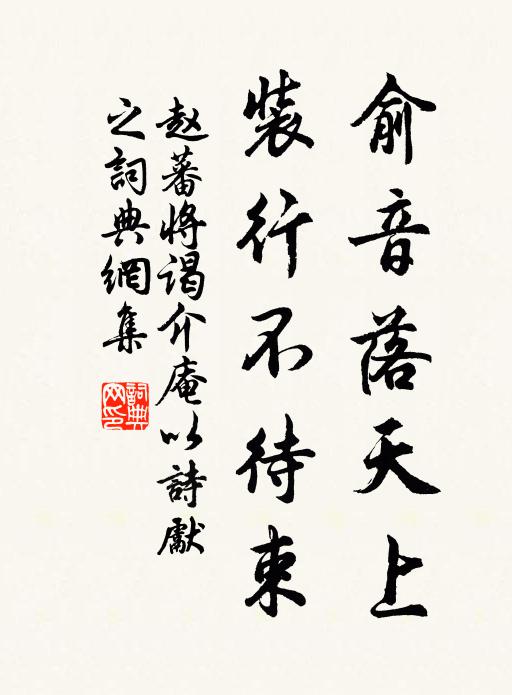 俞音落天上
裝行不待束
赵蕃将谒介庵以詩獻
之詞典網集
詞典
网印